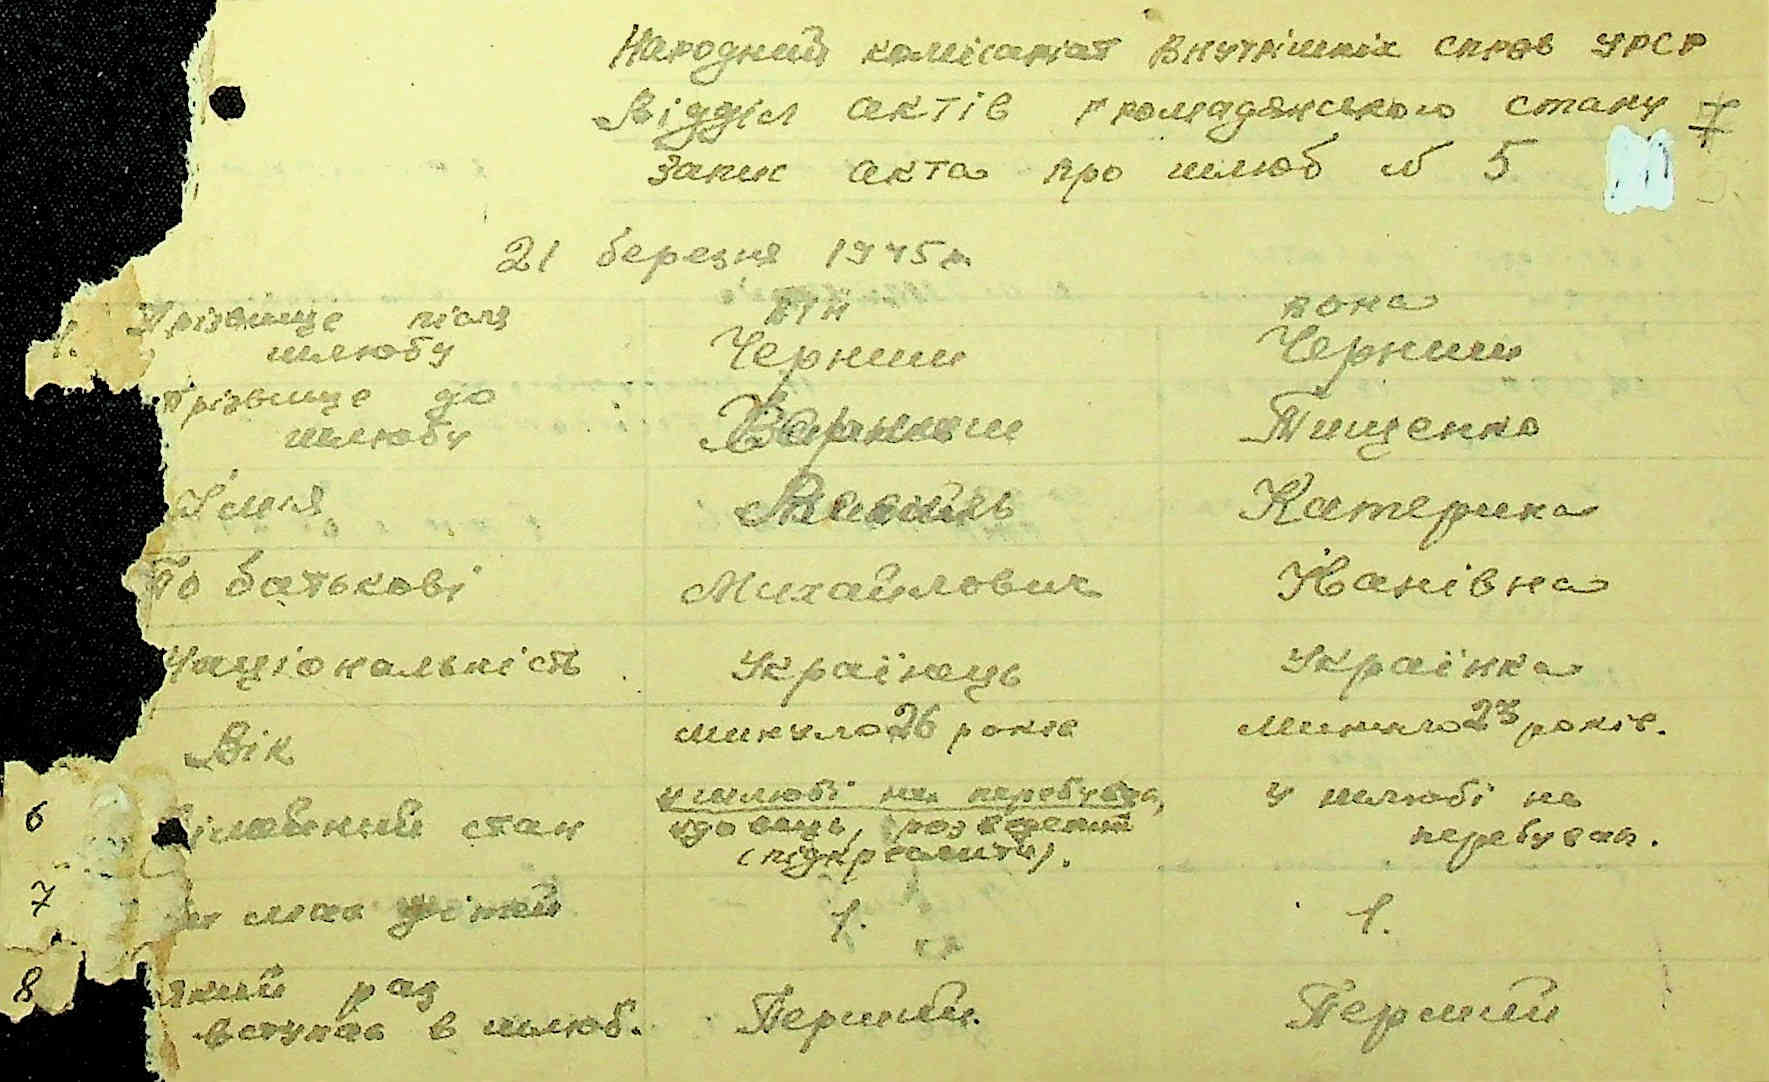 Народний комісаріат Внутрішніх справ УРСР
Відділ актів громадянського стану
Запис акта про шлюб № 5
21 березня 1945 р.
він вона
1. Прізвище після шлюбу Черниш Черниш
Прізвище до шлюбу Черниш Тищенко
Ім'я Василь Катерина
По батькові Михайлович Іванівна
Національність Українець Українка
Вік минуло 26 років минуло 23 років.
6 Сімейний стан у шлюбі не перебував, удовець, розведений (підкреслити). у шлюбі не перебував.
7 Чи має дітей 1. 1.
8 який раз вступає в шлюб. Перший. Перший